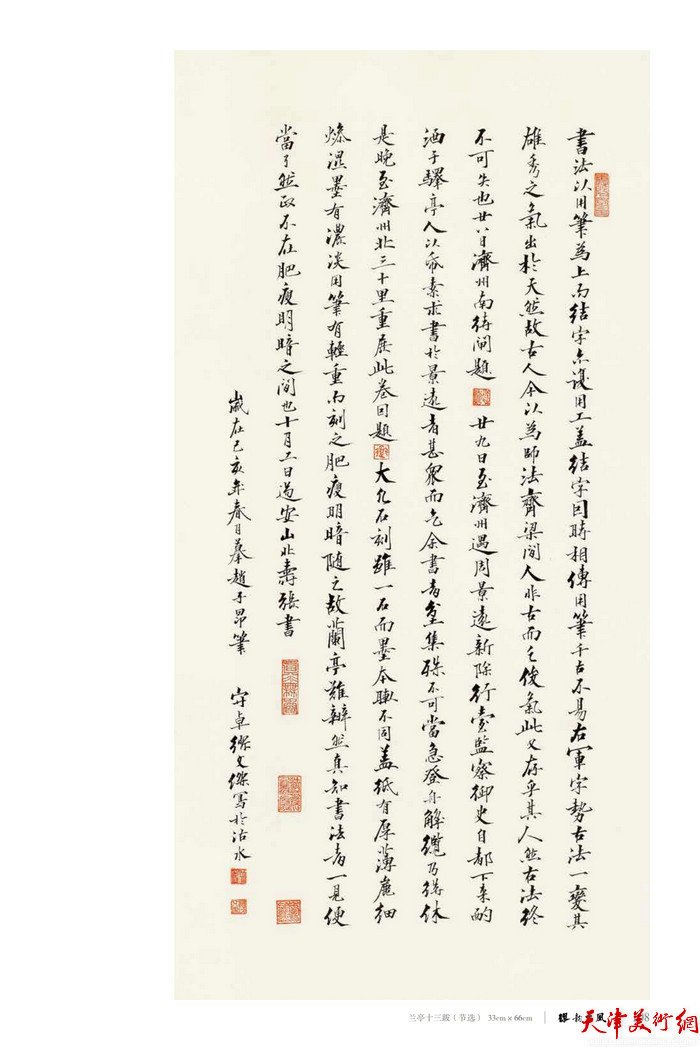 書法以用筆為上而結字亦須用工盖結字因時相傳用筆千古不易右軍字勢古法一變其
雄秀之氣出於天然故古人以為師法齊梁間人非古而乏俊氣此又存乎其人然古法終
不可失也廿八日濟州南待閘題 廿九日至濟州遇周景遠新除行臺監察御史自都下来酌
酒于驛亭人以紙素求書於景遠者甚衆而乞余書者坌集殊不可當急登舟解纜乃得休
是晚至濟州北三十里重展此卷因題 大凡石刻雖一石而墨本輒不同盖紙有厚薄麁細
燥濕墨有濃淡用筆有輕重而刻之肥瘦明暗隨之故蘭亭難辨然真知書法者一見便
當了然政不在肥瘦明暗之間也十月一日過安山北壽張書
歲在己亥年春月摹趙子昂筆 守卓 文傑寫於沽水
兰亭十三跋（节选） 33cm×66cm
天津美術網